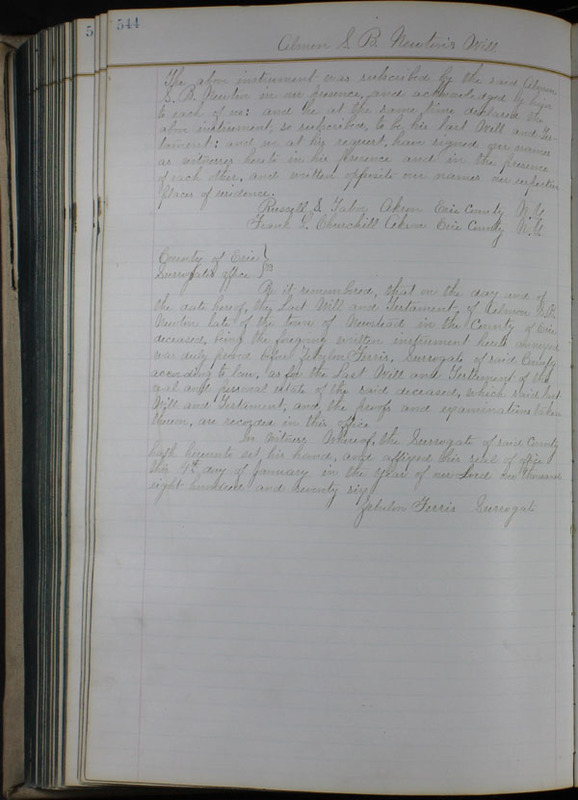 5
544
Almon S. B. Newton's Will
The above instrument was subscribed by the said Almon
S. B. Newton in our presence, and acknowledged by him
to each of us: and he at the same time declared the
above instrument, so subscribed, to be his last Will and Tes
tament: and we at his request, have signed our names
as witnesses hereto in his presence and in the presence
of each other, and written opposite our names our respective
places of residence.
Russell S. Tabor Akron Erie County N.Y.
Frank G. Churchill Akron Erie County N.Y.
County of Erie }
Surrogate's office } ss
Be it remembered, that on the day and of
the date hereof, the Last Will and Testament, of Almon S. B.
Newton late of the town of Newstead, in the County of Erie
deceased, being the foregoing written instrument hereto annexed
was duly proved before Zebulon Ferris, Surrogate of said County
according to law, as for the Last Will and Testament of the
real and personal estate of the said deceased, which said last
Will and Testament, and, the proofs and examinations taken
thereon, are recorded in this office
In Witness Whereof, the Surrogate of said County
hath hereunto set his hand, and affixed his seal of office
this 4th day of January in the year of our Lord one thousand
eight hundred and seventy six
Zebulon Ferris Surrogate